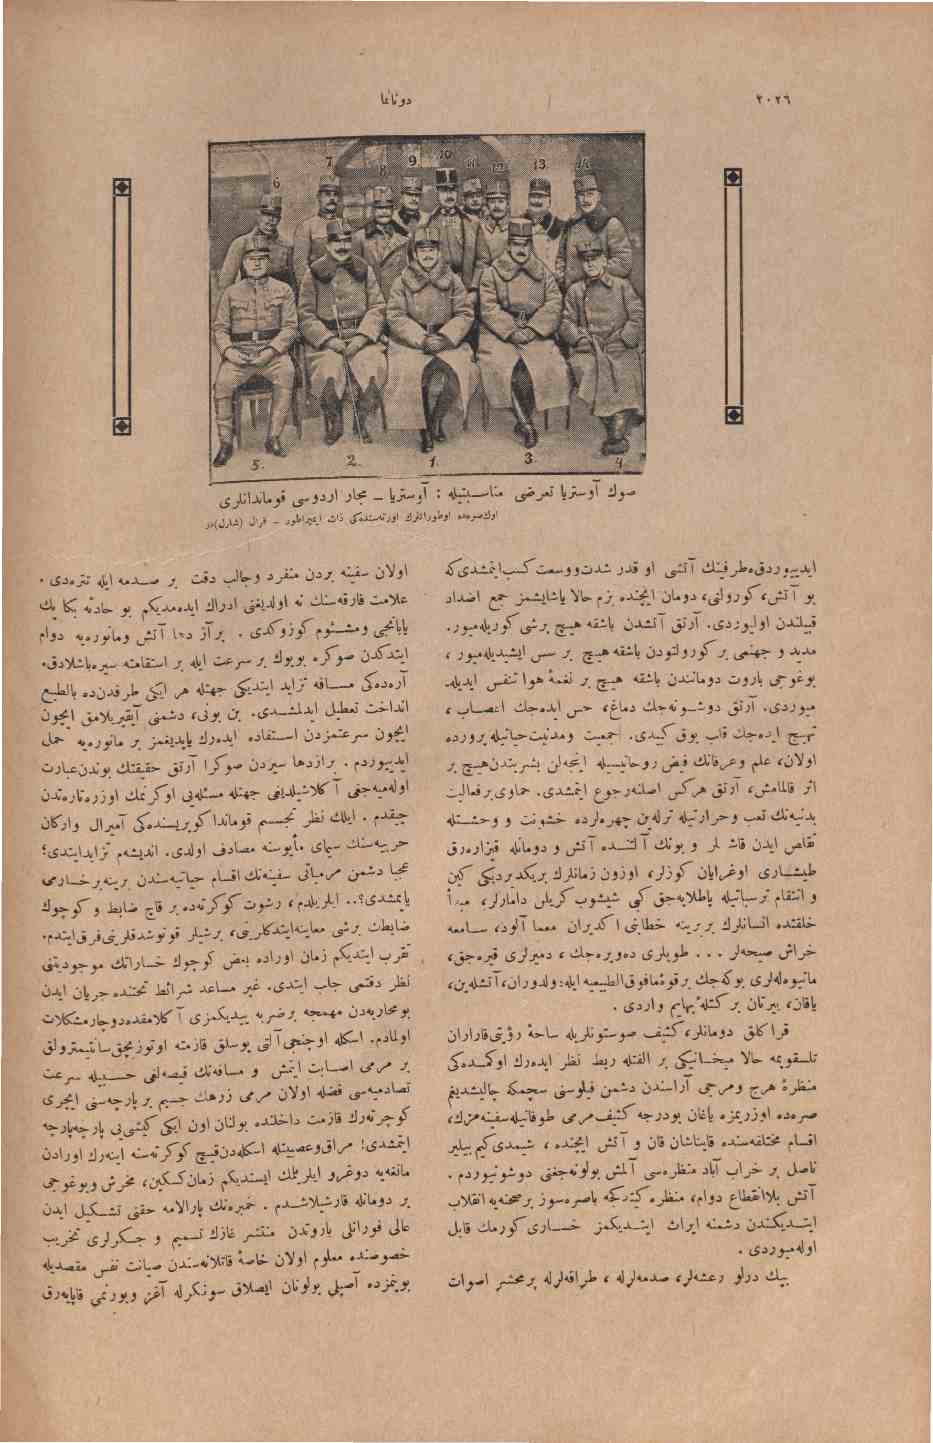 ٢٠٢٦
دونانما
6 7 8 9 10 11 12 13 14
5. 2. 1. 3. 4
صوك آوستریا تعرضی مناسبتیله : آوستریا ــ مجار اردوسی قوماندانلری
اوك صره‌ده اوطورانلرك اورته‌سنده‌كی ذات ایمپراطور ــ قرال (شارل)در
ایدییوردق‌ه‌طرفینك آتشی او قدر شدت‌ووسعت كسب‌ایتمشدی كه
بو آتش، كورولتی، دومان ایچنده بزم حالا یاشایشمز جمع اضداد
قبیلندن اولیوردی. آرتق آتشدن باشقه هیچ برشی كوریله‌میور.
مدید و جهنمی بر كورولتودن باشقه هیچ بر سس ایشیدیله‌میور ،
بوغوجی باروت دوماننندن باشقه هیچ بر نغمهٔ هوا تنفس ایدیله‌
میوردی. آرتق دوشونه‌جك دماغ، حس ایده‌جك اعصاب ،
تهییج ایده‌جك قلب یوق كبیدی. جمعیت ومدنیت‌حیاتیله‌پرورده
اولان، علم وعرفانك فیض روحانیسیله اینجه‌لن بشریتدن‌هیچ بر
اثر قالمامش، آرتق هركس اصلنه‌رجوع ایتمشدی. حماوی‌برفعالیت
بدنیه‌نك تعب وحرارتیله ترله‌ین چهره‌لرده خشونت و وحشتله
تقلص ایدن قاشلر و بونك آلتنده آتش و دومانله قیزاره‌رق
طیشاری اوغرایان كوزلر، اوزون زمانلرك بریكدیردیكی كین
و انتقام ترسباتیله پاطلایه‌جق كبی شیشوب كریلن دامارلر، مبدأ
خلقتده انسانلرك بربرینه خطابنی اكدیران معما آلود، سامعه
خراش صیحه‌لر . . . طوپلری ده‌ویره‌جك ، دمیرلری قیره‌جق،
مانیوه‌له‌لری بوكه‌جك برقوهٔ‌مافوق‌الطبیعیه ایله: ولدوران، آتشله‌ین،
یاقان، ییرتان بر كتلهٔ بهایم واردی .
قراكلق دومانلر، كثیف صوستونلریله ساحهٔ رؤیتی‌قاراران
تلسقوپمه حالا میخانیكی بر الفتله ربط نظر ایده‌رك اوكمده‌كی
منظرهٔ هرج ومرجی آراسندن دشمن فیلوسنی سچمكه چالیشدیغم
صره‌ده اوزریمزه یاغان بودرجه كثیف‌مرمی طوفانیله‌سفینه‌مزك،
اقسام مختلفه‌سنده قایناشان قان و آتش ایچنده ، شیمدی كیم بیلیر
ناصل بر خراب آباد منظره‌سی آلمش بولونه‌جغنی دوشونیوردم .
آتش بلاانقطاع دوام، منظره كیتدكجه باصره‌سوز برصحنه‌یه انقلاب
ایتدیكندن دشمنه ایراث ایتدیكمز خساری كورمك قابل
اوله‌میوردی .
بیك درلو رعشه‌لر، صدمه‌لرله ، طراقه‌لرله پرمحشر اصوات
اولان سفینه بردن منفرد وجالب دقت بر صدمه ایله تتره‌دی .
علامت فارقه‌سنك نه اولدیغنی ادراك ایده‌مدیكم بو حادثه بكا پك
یابانجی ومشئوم كوزوكدی . برآز دها آتش ومانوره‌یه دوام
ایتدكدن صوكره بویوك بر سرعت ایله بر استقامته سیره‌باشلادق.
آره‌ده‌كی مسافه تزاید ایتدیكی جهتله هر ایكی طرفدن‌ده بالطبع
انداخت تعطیل ایدلمشدی. بن بونی، دشمنی آیقیریلامق ایچون
ایچون سرعتمزدن استفاده ایده‌رك یاپدیغمز بر مانوره‌یه حمل
ایدییوردم . برازدها سیردن صوكرا آرتق حقیقتك بوندن‌عبارت
اوله‌میه‌جغی آكلاشیلدیغی جهتله مسئله‌یی اوكرنمك اوزره‌تاره‌تدن
چیقدم . ایلك نظر تجسسم قوماندا كوپریسنده‌كی آمیرال واركان
حربیه‌سنك سیمای مأیوسنه مصادف اولدی. اندیشه‌م تزایدایتدی؛
عجبا دشمن مرمیاتی سفینه‌نك اقسام حیاتیه‌سندن برینه‌برخسارمی
یاپمشدی؟.. ایلریلدم، رشوت كوكرته‌ده بر قاچ ضابط و كوچوك
ضابطك برشی معاینه‌ایتدكلرینی، برشیلر قونوشدقلرینی‌فرق‌ایتدم.
تقرب ایتدیكم زمان اوراده بعض كوچوك خساراتك موجودیتنی
نظر دقتمی جلب ایتدی. غیر مساعد شرائط تحتنده جریان ایدن
بومحاربه‌دن مهمجه برضربه یییدیكمزی آكلامقده‌دوچارمشكلات
اولمادم. اسكله اوچنجی‌آلتی یوسلق قازمته اوتوزبچق‌سانتیمترولق
بر مرمی اصابت ایتمش و مسافه‌نك قیصه‌لغی حسبیله سرعت
تصادمیه‌سی فضله اولان مرمی زرهك جسیم بر پارچه‌سنی ایچری
كوچرته‌رك قازمت داخلنده بولنان اون ایكی كیشی‌یی پارچه‌پارچه
ایتمشدی! مراق‌وعصبیتله اسكله‌دن‌قیچ كوكرته‌سنه اینه‌رك اورادن
مانغه‌یه دوغرو ایلریلمك ایستدیكم زمان‌كسكین، مخرش وبوغوجی
بر دومانله قارشیلاشدم . خمبره‌نك پارالامه حقنی تشكیل ایدن
عالی فورانلی باروتدن منتشر غازك تسمیم و جكرلری تخریب
خصوصنده معلوم اولان خاصهٔ قاتلانه‌سندن صیانت نفس مقصدیله
بوینمزده آصیلی بولونان ایصلاق سونكرله آغز وبورنمی قاپایه‌رق